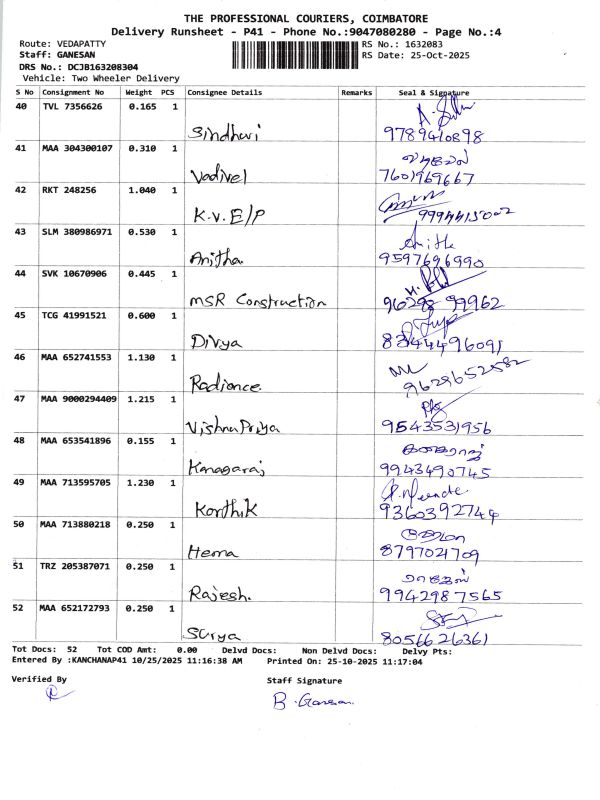 THE PROFESSIONAL COURIERS, COIMBATORE
Delivery Runsheet - P41 - Phone No.:9047080280 - Page No.:4
Route: VEDAPATTY RS No.: 1632083
Staff: GANESAN RS Date: 25-Oct-2025
DRS No.: DCJB163208304
Vehicle: Two Wheeler Delivery
S No Consignment No Weight PCS Consignee Details Remarks Seal & Signature
40 TVL 7356626 0.165 1
Sindhuri 9789410898
41 MAA 304300107 0.310 1
Vadivel 7601969667
42 RKT 248256 1.040 1
K.V.E/P 9994415002
43 SLM 380986971 0.530 1 Anitha
Anitha 9597696990
44 SVK 10670906 0.445 1
MSR Construction 96298 99962
45 TCG 41991521 0.600 1
Divya 8344496091
46 MAA 652741553 1.130 1
Radiance 9629652582
47 MAA 9000294409 1.215 1
VishnuPriya 9543531956
48 MAA 653541896 0.155 1 கனகராஜ்
Kanagaraj 9943490745
49 MAA 713595705 1.230 1
Karthik 9360392744
50 MAA 713880218 0.250 1 ஹேமா
Hema 8797024709
51 TRZ 205387071 0.250 1 ராஜேஷ்
Rajesh. 9942987565
52 MAA 652172793 0.250 1
Surya 8056626361
Tot Docs: 52 Tot COD Amt: 0.00 Delvd Docs: Non Delvd Docs: Delvy Pts:
Entered By :KANCHANAP41 10/25/2025 11:16:38 AM Printed On: 25-10-2025 11:17:04
Verified By Staff Signature
B. Ganesan